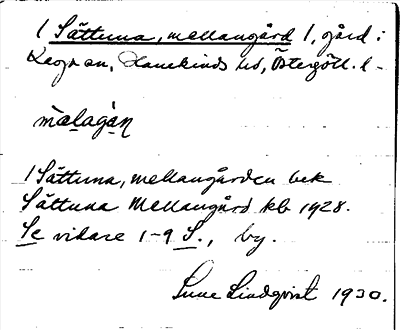 1 Sättuna, mellangård 1, gård i
Kärna sn, Hanekinds hd, Östergötl. l-
màlagå̀n
1 Sättuna, mellangården bek
Sättuna Mellangård kb 1928.
Se vidare 1-9 S., by.
Sune Lindqvist 1930.